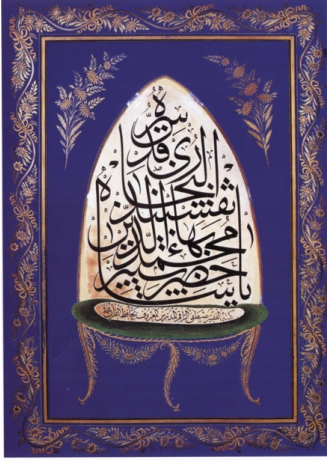 يا حضرت پير
محمد بهاء الدين
نقشبند
البخاري
قدس سره